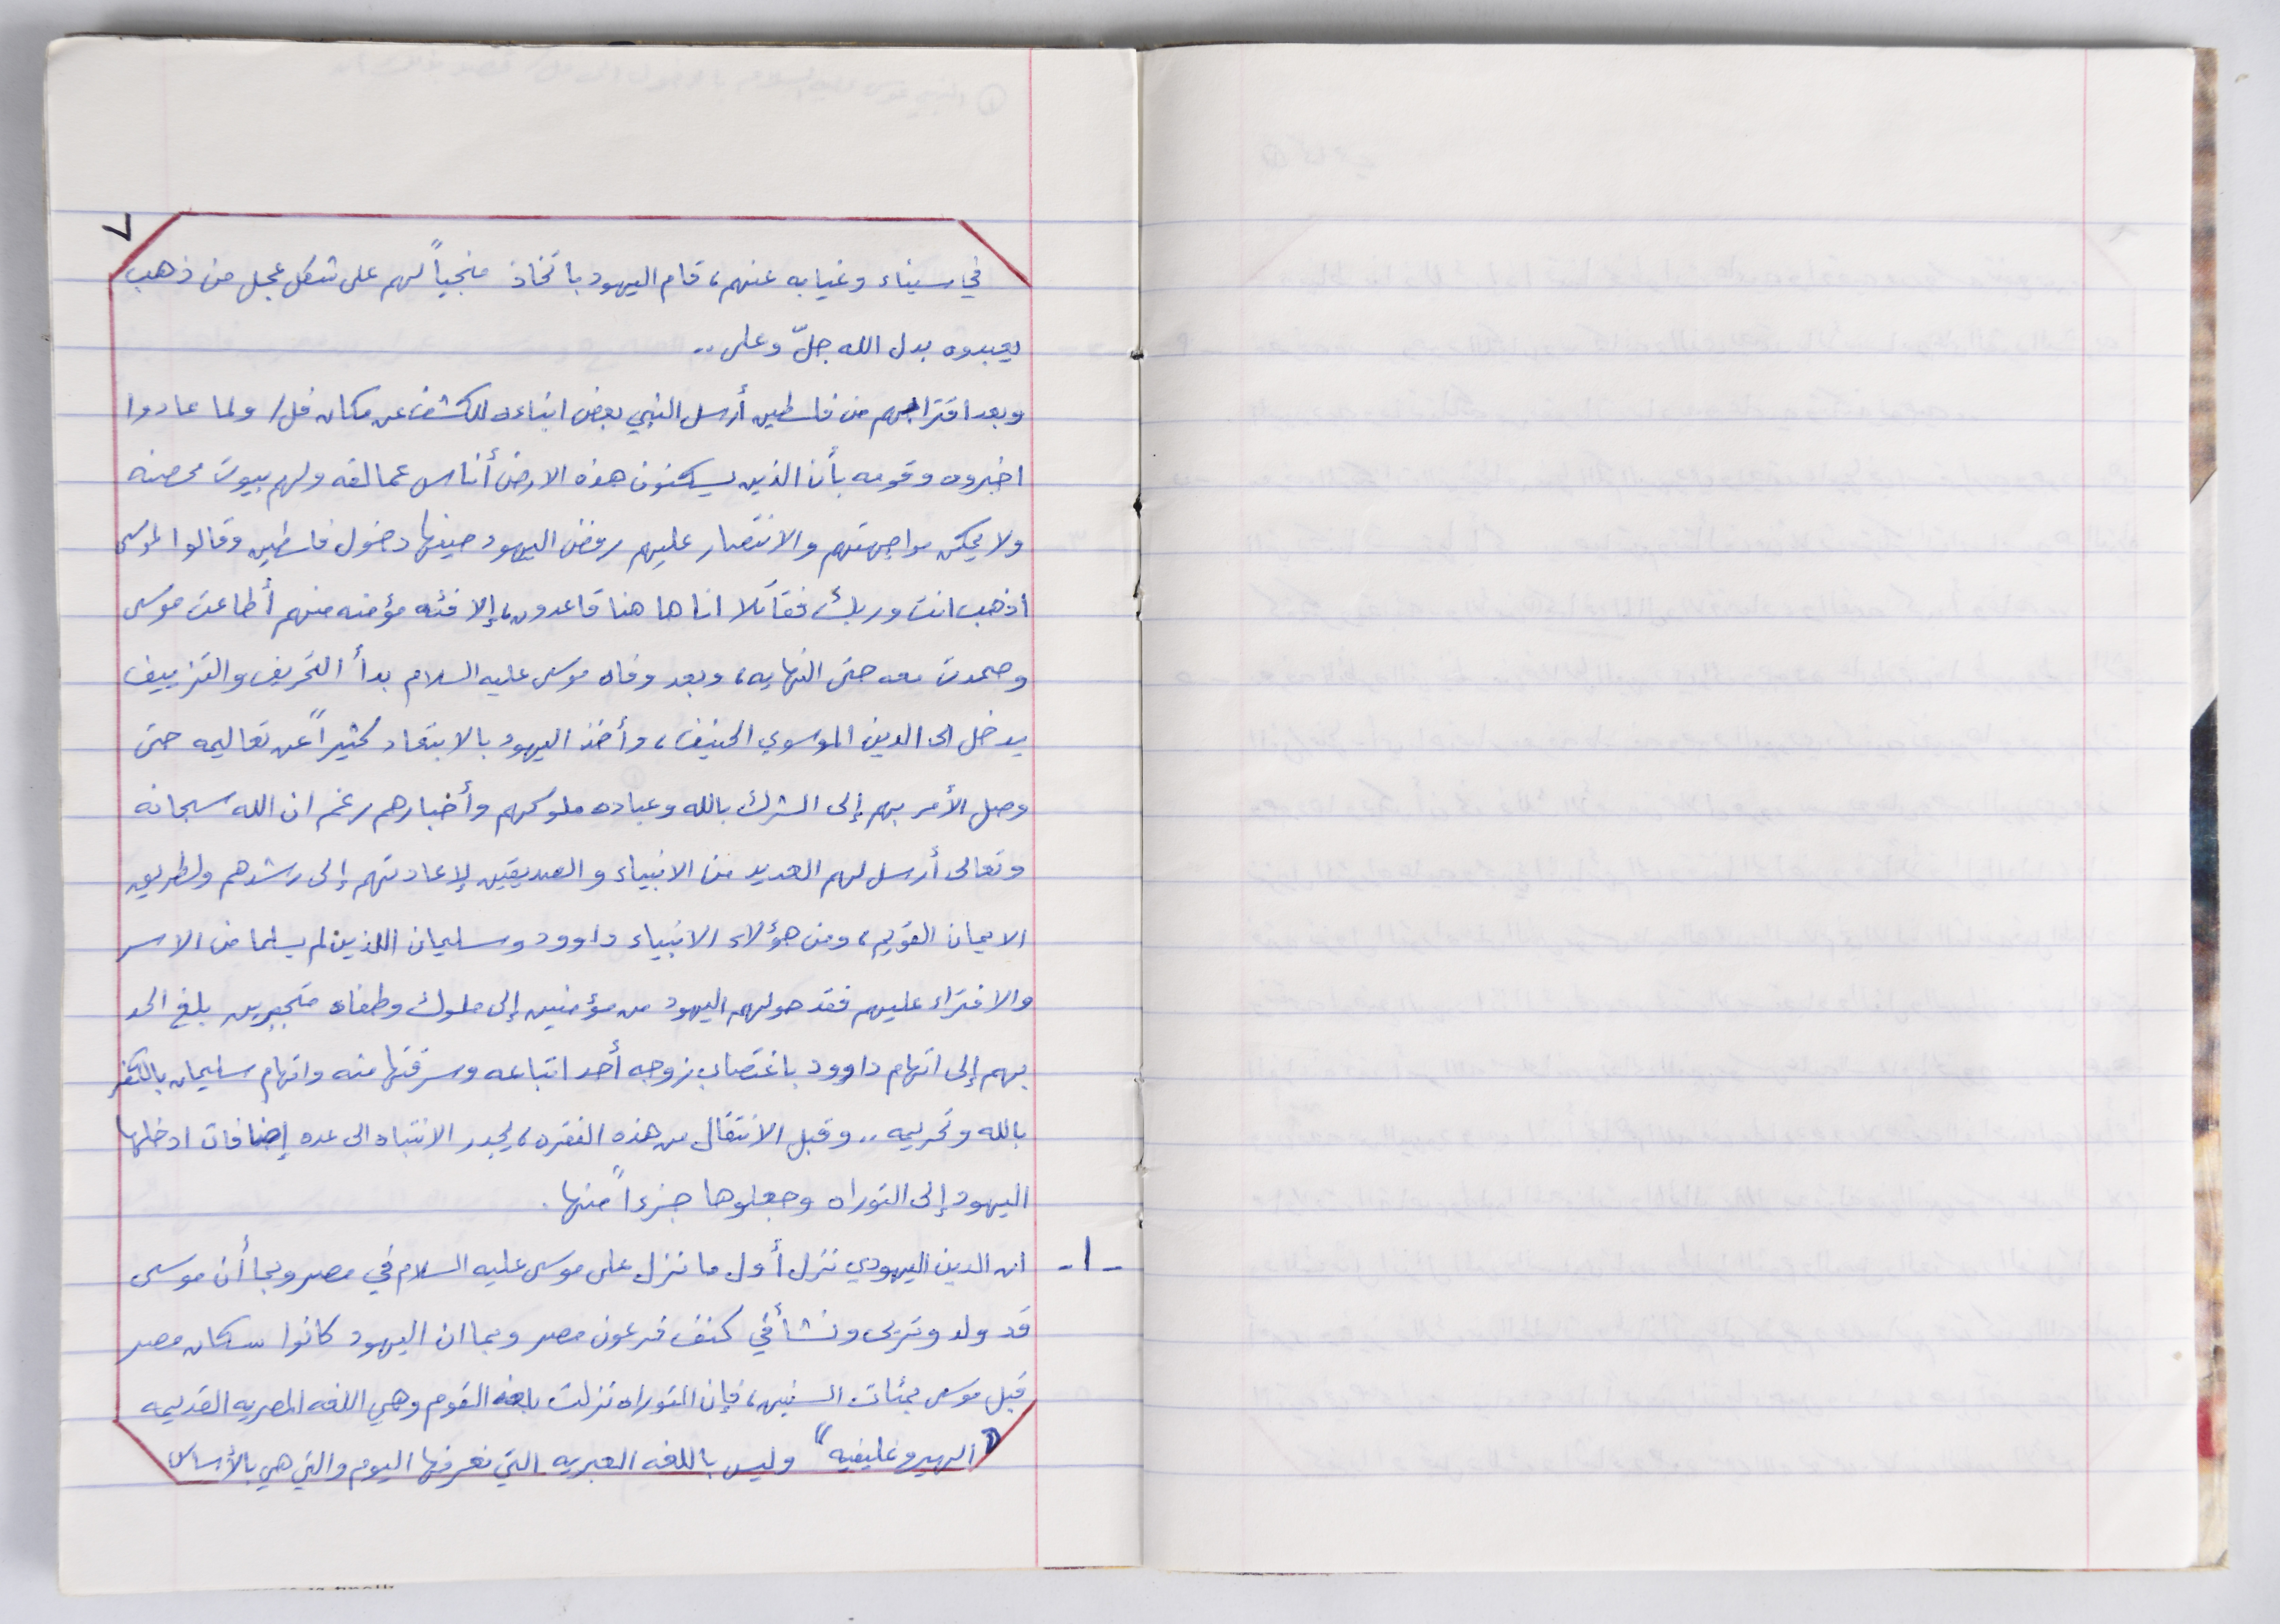 ٧
في سيناء وغيابه عنهم، قام اليهود باتخاذ منجياً لهم على شكل عجل من ذهب
يعبدوه بدل الله جلّ وعلى..
وبعد اقترابهم من فلسطين أرسل النبي بعض ابناءه للكشف عن مكان فل/ ولما عادوا
اخبروه وقومه بأن الذين يسكنون هذه الارض أناس عمالقه ولهم بيوت محصنه
ولا يمكن مواجهتهم والانتصار عليهم رفض اليهود حينها دخول فلسطين وقالوا لموسى
اذهب انت وربك فقاتلا انا ها هنا قاعدون، إلا فئه مؤمنه منهم أطاعت موسى
وصمدت معه حتى النهايه، وبعد وفاه موسى عليه السلام بدأ التحريف والتزييف
يدخل الى الدين الموسوي الحنيف، وأخذ اليهود بالابتعاد كثيراً عن تعاليمه حتى
وصل الأمر بهم إلى الشرك بالله وعباده ملوكهم وأخبارهم رغم ان الله سبحانه
وتعالى أرسل لهم العديد من الانبياء والصديقين لإعادتهم إلى رشدهم ولطريق
الايمان القويم، ومن هؤلاء الانبياء داوود وسليمان اللذين لم يسلما من الاسر
والافتراء عليهم فقد حولهم اليهود من مؤمنين إلى ملوك وطغاه متجبرين بلغ الحد
بهم إلى اتهام داوود باغتصاب زوجه أحد اتباعه وسرقتها منه واتهام سليمان بالكفر
بالله وتحريمه.. وقبل الانتقال من هذه الفقره، يجدر الانتباه الى عده إضافات ادخلها
اليهود إلى التوراه وجعلوها جزءاً منها.
-١- ان الدين اليهودي نزل أول ما نزل على موسى عليه السلام في مصر وبما أن موسى
قد ولد وتربى ونشأ في كنف فرعون مصر وبما ان اليهود كانوا سكان مصر
قبل موسى بمئات السنين، فإن التوراه نزلت بلغه القوم وهي اللغه المصريه القديمه
"الهيروغليفيه" وليس باللغه العبريه التي نعرفها اليوم والتي هي بالأساس